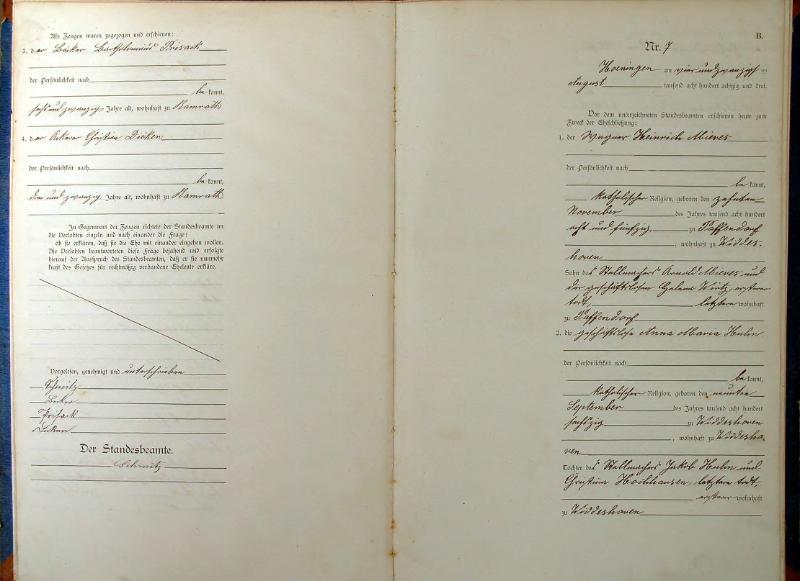 Als Zeugen waren zugezogen und erschienen:
3. der Bäcker Bartholomäus Prisack
der Persönlichkeit nach
be kannt,
sechsundzwanzig Jahre alt, wohnhaft zu Ramrath
4. der Ackerer Christian Dicken
der Persönlichkeit nach
be kannt,
drei und zwanzig Jahre alt, wohnhaft zu Ramrath
In Gegenwart der Zeugen richtete der Standesbeamte an
die Verlobten einzeln und nach einander die Frage:
ob sie erklären, daß sie die Ehe mit einander eingehen wollen.
Die Verlobten beantworteten diese Frage bejahend und erfolgte
hierauf der Ausspruch des Standesbeamten, daß er sie nunmehr
kraft des Gesetzes für rechtmäßig verbundene Eheleute erkläre.
Vorgelesen, genehmigt und unterschrieben
Schmitz
Prisack
Dicken
Der Standesbeamte.
Schmitz
B.
Nr. 7
Hoeningen am vier und zwanzigsten
August tausend acht hundert achtzig und drei.
Vor dem unterzeichneten Standesbeamten erschienen heute zum
Zweck der Eheschließung:
1. der Wagner Heinrich Mieves
der Persönlichkeit nach
be kannt,
katholischer Religion, geboren den zehnten
November des Jahres tausend acht hundert
acht und fünfzig zu Paffendorf
, wohnhaft zu Widdes-
hoven
Sohn des Stellmachers Arnold Mieves und
der geschäftslosen Helena Wirtz, ersterer
todt, letztere wohnhaft
zu Paffendorf
2. die geschäftslose Anna Maria Huhn
der Persönlichkeit nach
be kannt,
katholischer Religion, geboren den neunten
September des Jahres tausend acht hundert
sechszig zu Widdeshoven
, wohnhaft zu Widdesho-
ven
Tochter des Stellmachers Jakob Huhn und
Christina Hochhausen, letztere todt,
ersterer wohnhaft
zu Widdeshoven